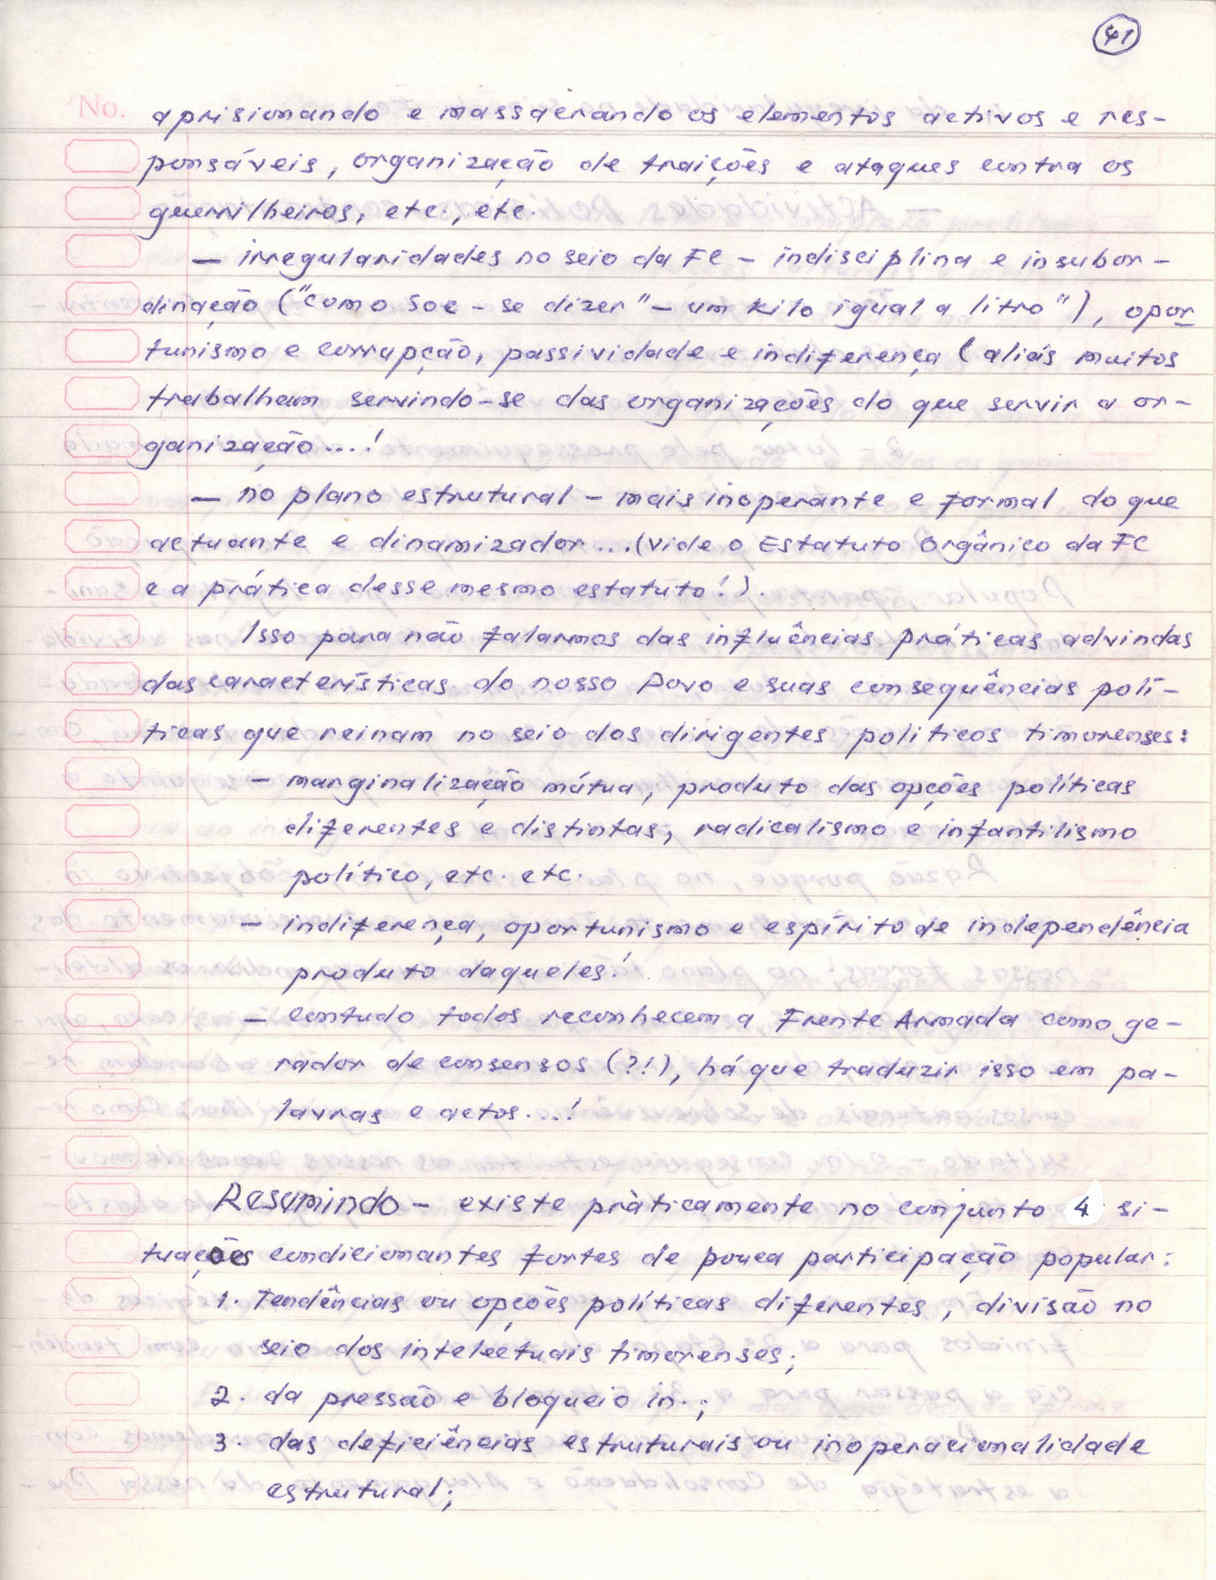 41
No.
aprisionando e massacrando os elementos activos e res-
ponsáveis, organização de traições e ataques contra os
guerrilheiros, etc., etc.
— irregularidades no seio da FC - indisciplina e insubor-
dinação ("como soe-se dizer" — um kilo igual a litro"), opor
tunismo e corrupção, passividade e indiferença (aliás muitos
trabalham servindo-se das organizações do que servir a or-
ganização...!
— no plano estrutural - mais inoperante e formal do que
actuante e dinamizador...(vide o Estatuto Orgânico da FC
e a prática desse mesmo estatuto!).
Isso para não falarmos das influências práticas advindas
das características do nosso Povo e suas consequências polí-
ticas que reinam no seio dos dirigentes políticos timorenses:
- marginalização mútua, produto das opções políticas
diferentes e distintas, radicalismo e infantilismo
político, etc. etc.
- indiferença, oportunismo e espírito de independência
produto daqueles!
- contudo todos reconhecem a Frente Armada como ge-
rador de consensos (?!), há que traduzir isso em pa-
lavras e actos...!
Resumindo - existe pràticamente no conjunto 4 si-
tuações condicionantes fortes de pouca participação popular:
1. Tendências ou opções políticas diferentes, divisão no
seio dos intelectuais timorenses;
2. da pressão e bloqueio in.;
3. das deficiências estruturais ou inoperacionalidade
estrutural;